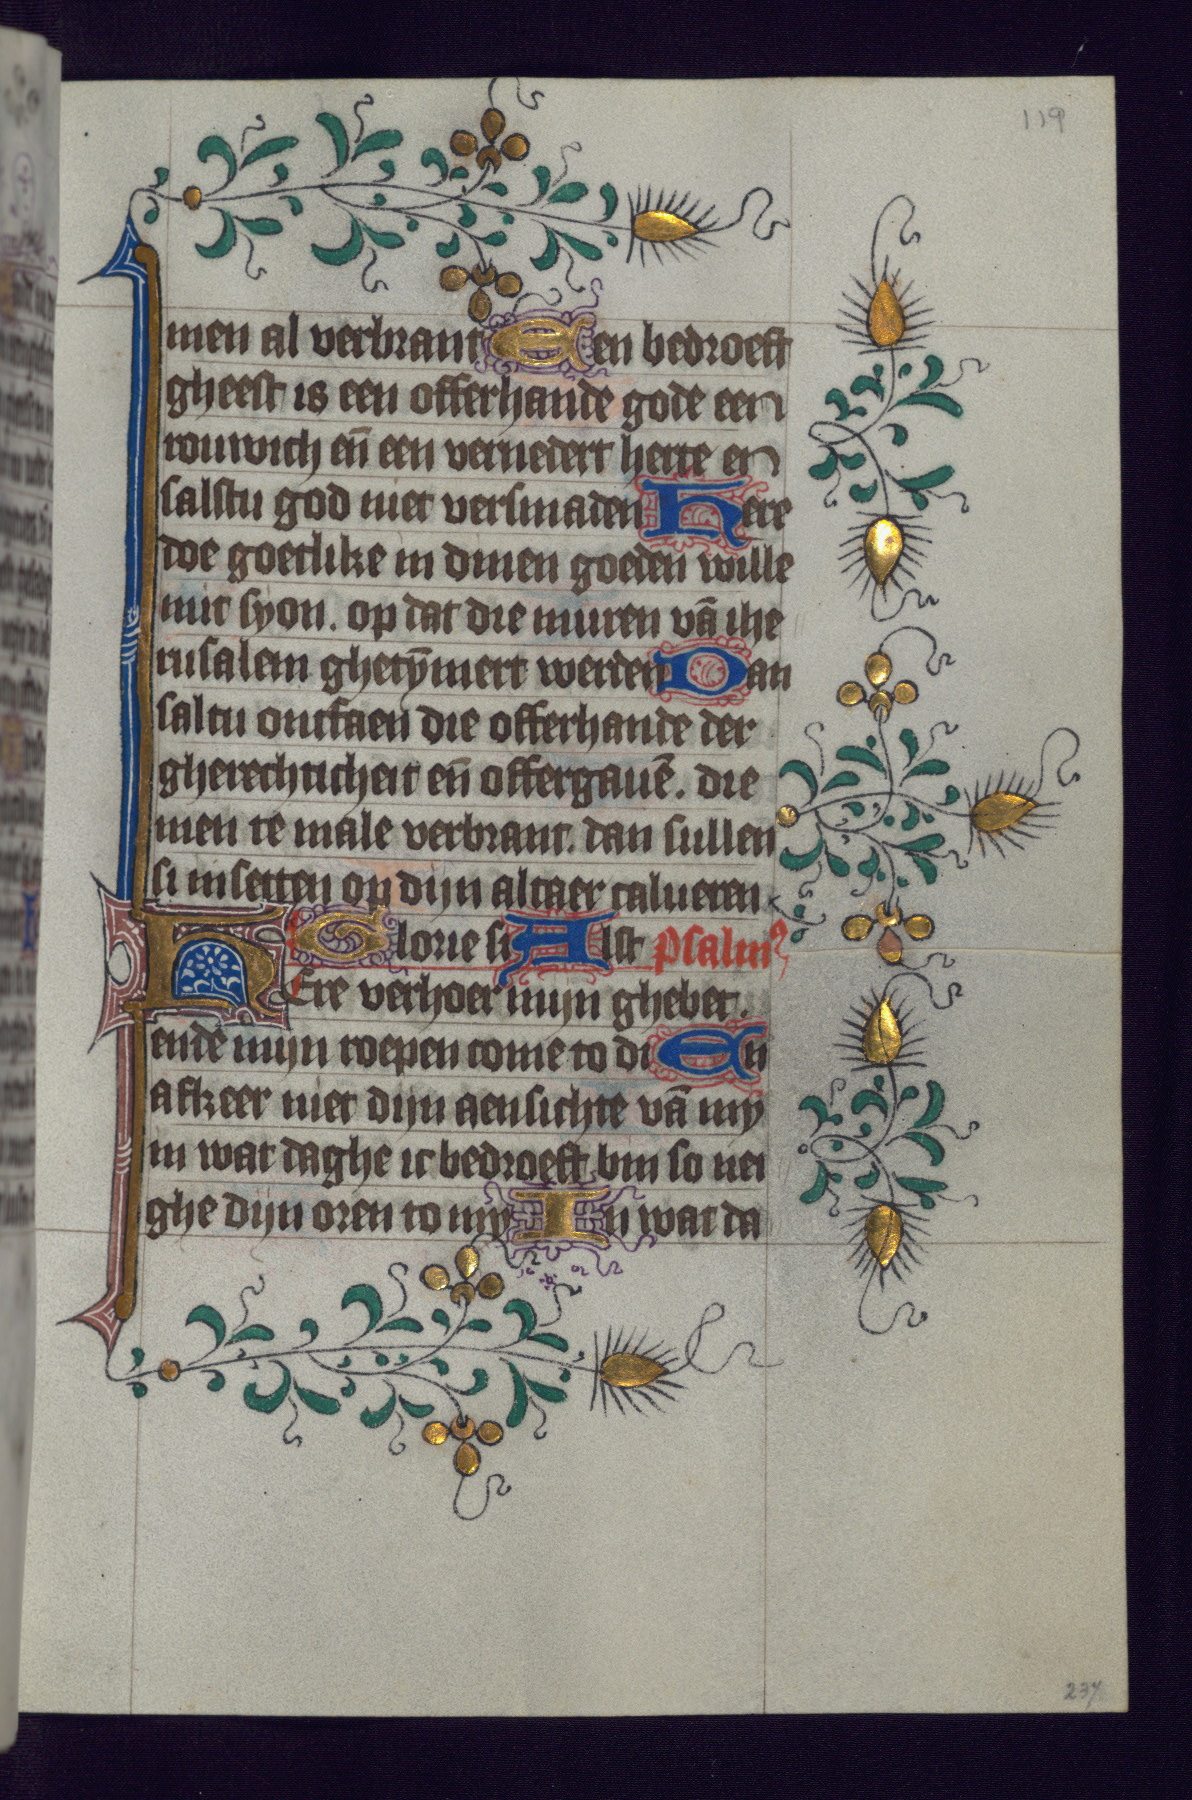 119
men al verbrant Een bedroeft
gheest is een offerhande gode een
rouwich eñ een vernedert herte en
salstu god niet versmaden Here
doe goetlike in dinen goeden wille
mit syon. op dat die muren vā ihe
rusalem ghetȳmert werden Dan
saltu ontfaen die offerhande der
gherechticheit eñ offergauē. die
men te male verbrant. dan sullen
si in setten op dijn altaer calueren
Glorie si Alst Psalm
HEre verhoer mijn ghebet.
ende mijn roepen come to di En
afkeer niet dijn aensichte vā my
in wat daghe ic bedroeft bin so nei
ghe dijn oren to my In wat da
237